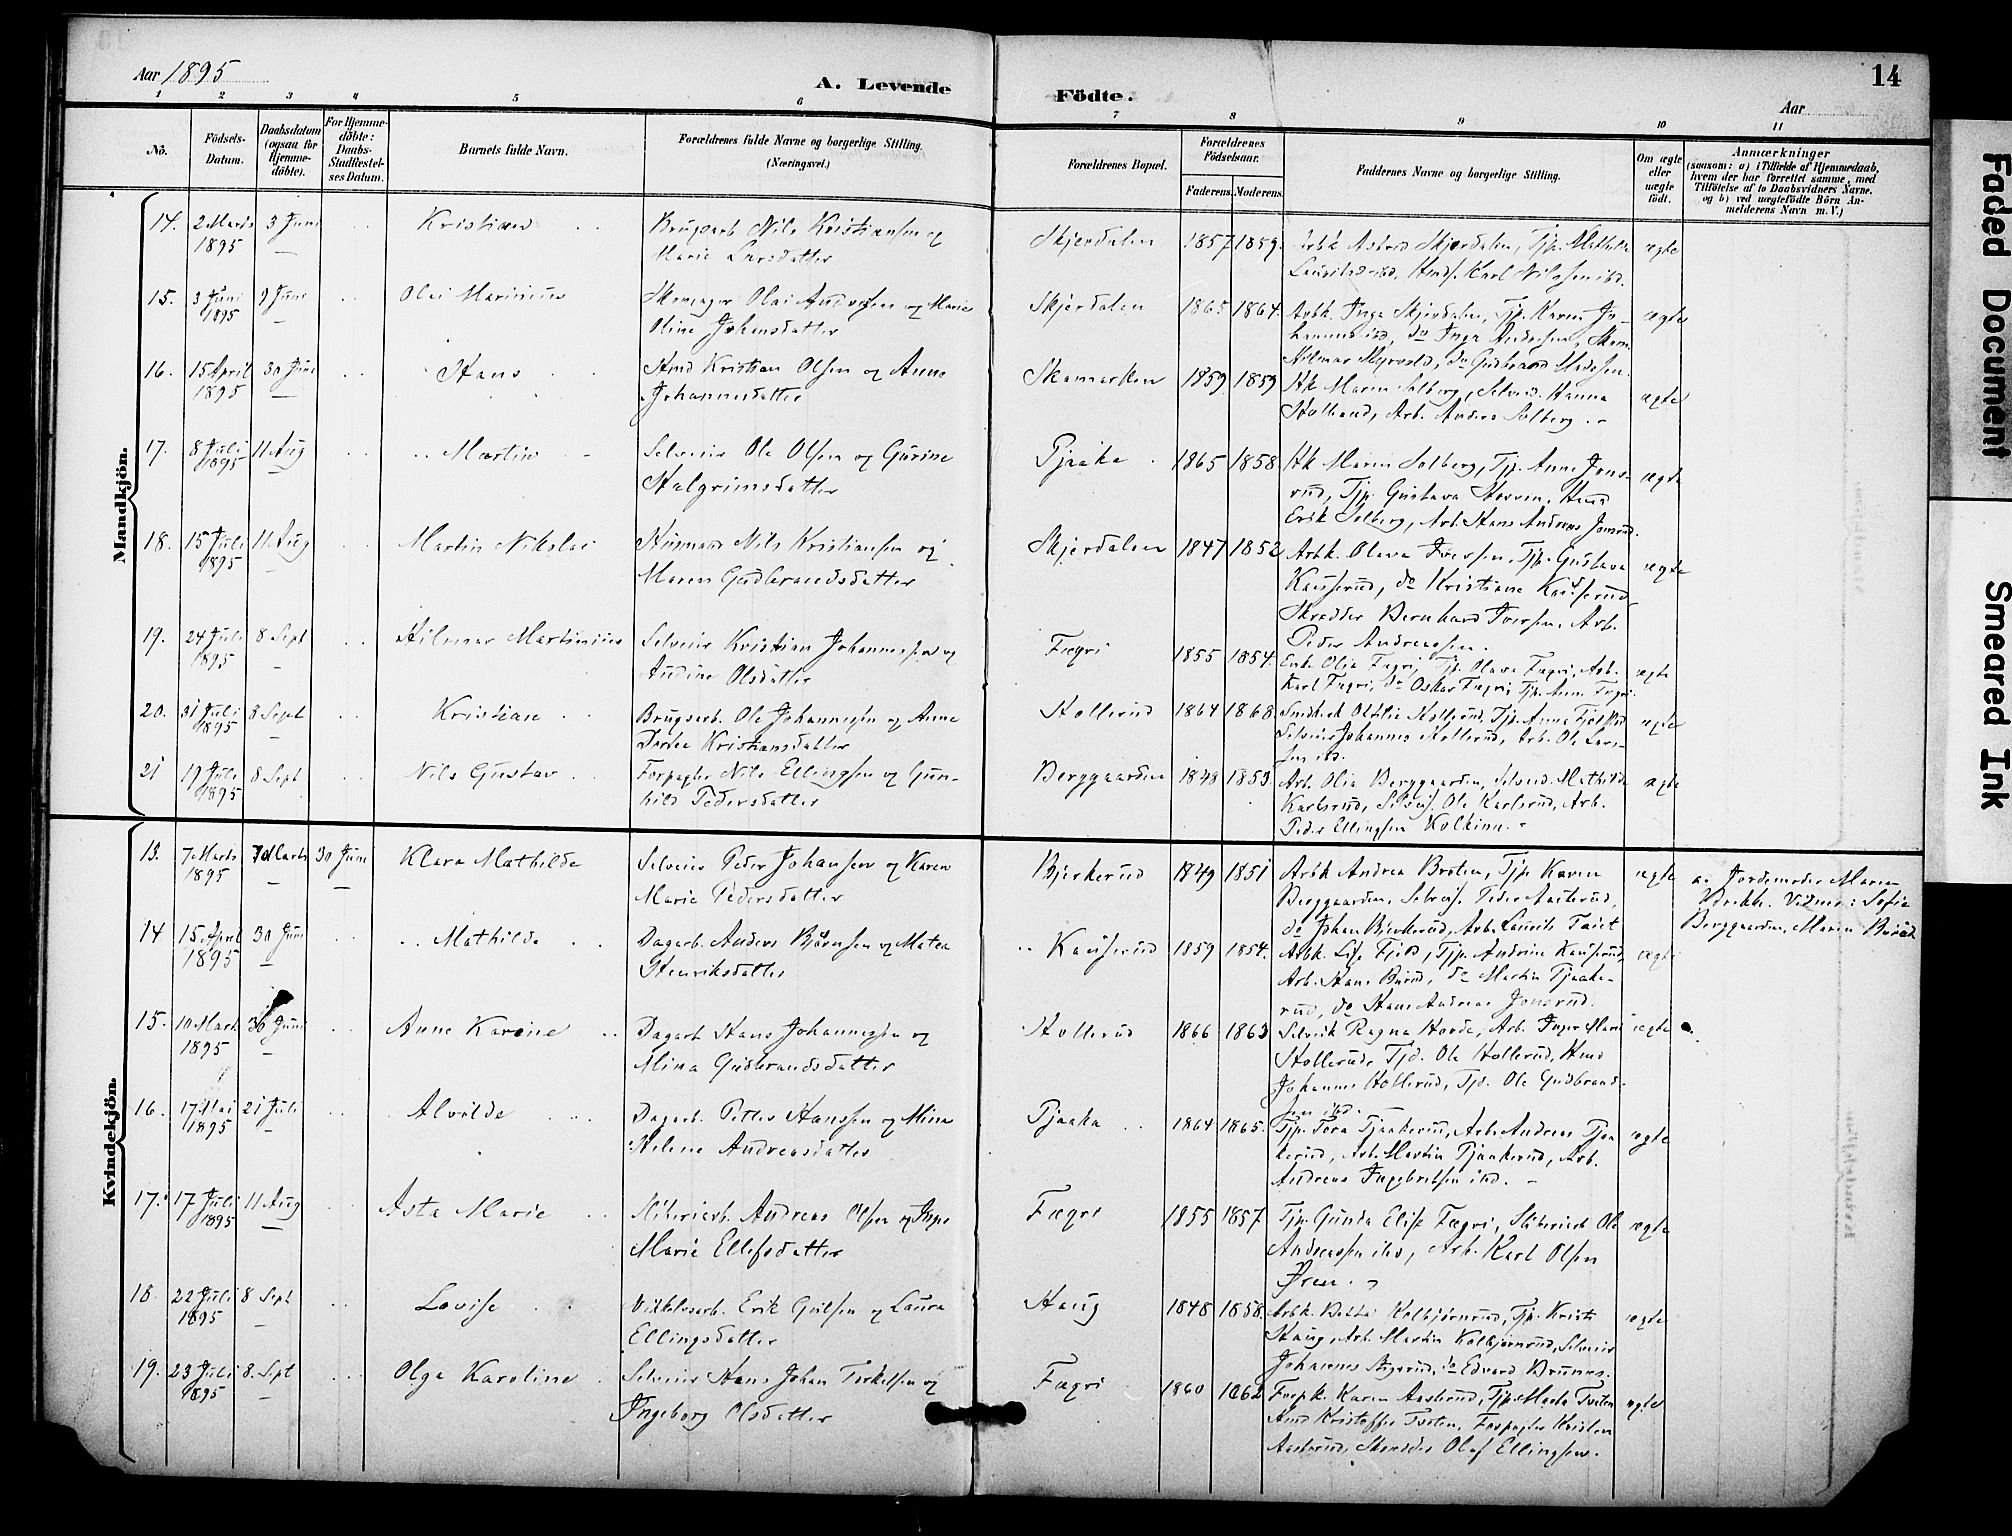 Aar 1895
A. Levende
Födte.
Aar
14
1 2 3 4 5 6 7 8 9 10 11
No.
Födsels-Datum.
Daabsdatum (ogsaa for Hjemme-döbte).
For Hjemme-döbte: Daabs-Stadfæstel-ses Datum.
Barnets fulde Navn.
Forældrenes fulde Navne og borgerlige Stilling. (Næringsvei.)
Forældrenes Bopæl.
Forældrenes Födselsaar.
Faderens. Moderens.
Faddernes Navne og borgerlige Stilling.
Om ægte eller uægte födt.
Anmærkninger
(saasom: a) i Tilfælde af Hjemmedaab,
hvem der har forrettet samme, med
Tilföielse af to Daabsvidners Navne.
og b) ved uægtefödte Börn An-
melderens Navn m. V.)
Mandkjön.
14. 2 Marts 1895 3 Juni Kristian Brugsarb. Nils Kristiansen og Marie Larsdatter Skjerdalen 1857 1859. Arbk. Astrid Skjerdalen, Tjp. Mathilde Lauritsd. ibd, Hmd. Karl Nilssen ibd. ægte
15. 3 Juni 1895 9 Juni Olai Marinius Skomager Olai Andersen og Marie Oline Johansdatter Skjerdalen 1865 1864. Arbk. Inga Skjerdalen, Tjp. Karen Jo-hannesd. ibd, do Inga Andersen, Skom. Hilmar Myrvold, do Gudbrand Madssen. ægte
16. 15 April 1895 30 Juni Hans Hmd Kristian Olsen og Anne Johannesdatter Skamarken 1859 1859 Hk Maren Solberg, Selveid. Hanna Holtand, Arb. Anders Solberg. ægte
17. 8 Juli 1895 11 Aug Martin Selveier Ole Olsen og Gurine Halgrimsdatter Pjaaka 1865 1858 Hk Maren Solberg, Tjp. Anne Jons-rud, Tjp. Gustava Horven, Hmd Erik Solberg, Arb. Hans Andreas Jonsrud. ægte
18. 15 Juli 1895 11 Aug Martin Nikolai Husmand Nils Kristiansen og Maren Gudbrandsdatter Skjerdalen 1847 1852 Arbk. Olava Iversen, Tjp. Gustava Kauserud, do Kristiane Kauserud, Skrædder Bernhard Iversen, Arb. Peder Andreassen. ægte
19. 24 Juli 1895 8 Sept Hilmar Martinius Selveier Kristian Johannessen og Andine Olsdatter Fægri 1855 1854. Enke Olia Fægri, Tjp. Olava Fægri, Arb. Karl Fægri, do Oskar Fægri, Tjp. Anne Fægri. ægte
20. 31 Juli 1895 8 Sept Kristian Brugsarb. Ole Johannessen og Anne Dorthea Kristiansdatter Hollerud 1864 1868 Hollerud, Tjp. Anna Selveier Johannes Hollerud, Arb. Ole Lars-sen ibd. ægte
21 19 Juli 1895 8 Sept Nils Gustav Forpagter Nils Ellingsen og Gun-hild Pedersdatter Berggaarden 1848 1853 Arb. Olia Berggaarden, Selveid. Mathilde Karlsrud, Selveis. Ole Karlsrud, Arb. Peder Ellingsen Kolkinn. ægte
Kvindekjön.
13. 7 Marts 1895 7 Marts 30 Juni Klara Mathilde Selveier Peder Johansen og Karen Marie Pedersdatter Bjerkerud 1849 1851 Arbk Andrea Braaten, Tjp. Karen Berggaarden, Selveis. Peder Aaslerud, do Johan Bjerkerud, Arb. Laurits Taiet ægte a. Jordemoder Maren Vrekke. Vidner: Sofie Berggaarden, Maren
14 15 April 1895 30 Juni Mathilde Dagarb. Anders Bjørnsen og Mathea Henriksdatter Kauserud 1859 1854. Arbk. Lise Fjeld, Tjp. Andrine Kauserud, Arb. Hans Burud, do Martin Pjaake-rud, do Hans Andreas Jonsrud. ægte
15. 10 Marts 1895 30 Juni Anne Karine Dagarb Hans Johannessen og Mina Gudbrandsdatter Hollerud 1866 1863 Selveik Ragna Horde, Arb. Inger Marie Hollerud, Tjd. Ole Hollerud, Hmd Johannes Hollerud, Tjd. Ole Gudbrand-sen ibd. ægte
16. 17 Mai 1895 21 Juli Alvilde Dagarb. Petter Hanssen og Mina Helene Andreasdatter Pjaaka 1864 1865. Tjp. Tora Pjaakerud, Arb. Andreas Pjaa-kerud, Arb. Martin Pjaakerud, Arb. Andreas Ingebretsen ibd. ægte
17. 17 Juli 1895 11 Aug Asta Marie Sliberiarb. Andreas Olsen og Inger Marie Ellefsdatter Fægri 1855 1857 Tjp. Gunda Elise Fægri, Sliberiarb Ole Andreassen ibd, Arb. Karl Olsen Øren. ægte
18. 22 Juli 1895 8 Sept Lovise Erik Gulsen og Laura Ellingsdatter Haug 1848 1858. Arbk. Kolbjørnrud, Tjp. Kristi Haug, Arb. Martin Kolbjørnrud, Selveier Johannes do Edvard Brunes. ægte
19. 23 Juli 1895 8. Sept Olga Karoline Selveier Hans Johan Torkelsen og Ingeborg Olsdatter Fægri 1860 1862 Forpk. Karen Aaslerud, Tjp. Marta Tveten Hmd Kristoffer Tveten, Forpagter Kristen Aaslerud, Skrædder Olaf Ellingsen. ægte
Faded Document
Smeared Ink